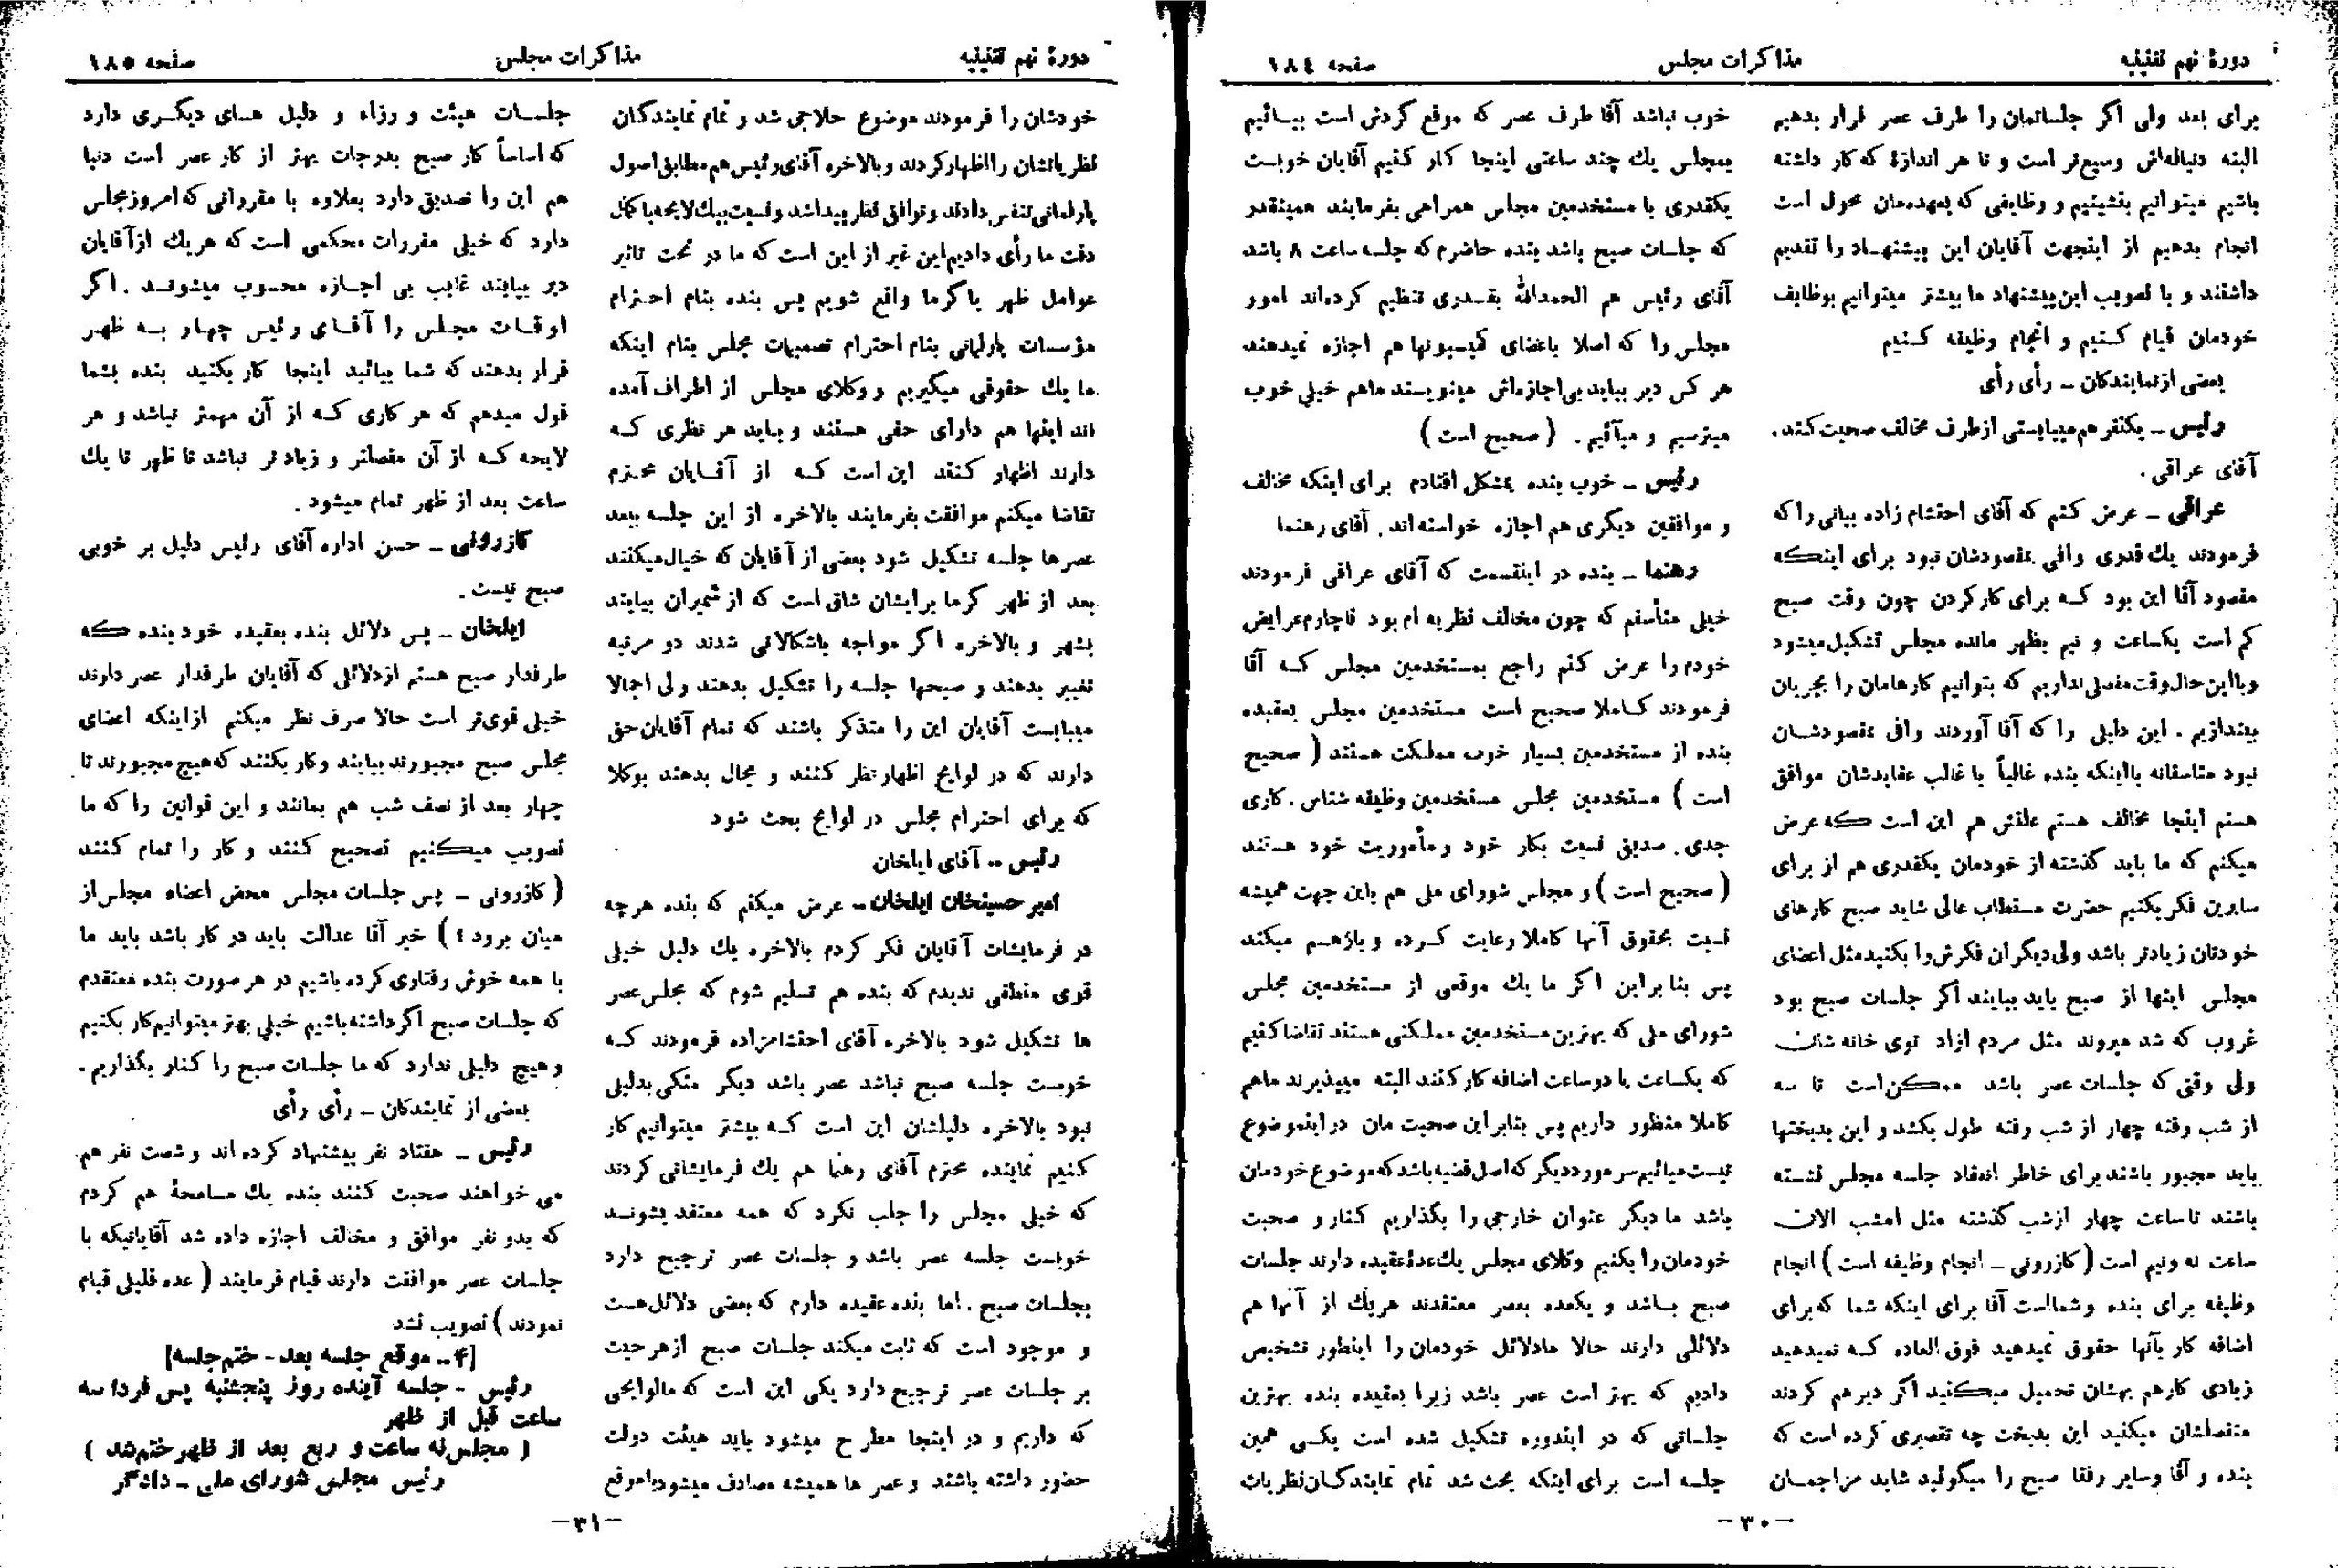 دورهٔ نهم تقنینیه
مذاکرات مجلس
صفحه ۱۸٤
برای بعد ولی اگر جلساتمان را طرف عصر قرار بدهیم
البته دنباله‌اش وسیع‌تر است و تا هر اندازهٔ که کار داشته
باشیم میتوانیم بنشینیم و وظایفی که بعهده‌مان محول است
انجام بدهیم از اینجهت آقایان این پیشنهاد را تقدیم
داشتند و با تصویب این پیشنهاد ما بیشتر میتوانیم بوظایف
خودمان قیام کنیم و انجام وظیفه کنیم
بعضی از نمایندگان ـ رأی رأی
رئیس ـ یکنفر هم میبایستی از طرف مخالف صحبت کند.
آقای عراقی.
عراقی ـ عرض کنم که آقای احتشام زاده بیانی را که
فرمودند یك قدری وافی بمقصودشان نبود برای اینکه
مقصود آقا این بود که برای کار کردن چون وقت صبح
کم است یکساعت و نیم بظهر مانده مجلس تشکیل میشود
و با این حال وقت مفصلی نداریم که بتوانیم کارهامان را بجریان
بیندازیم . این دلیلی را که آقا آوردند وافی بمقصودشان
نبود متاسفانه با اینکه بنده غالباً با غالب عقایدشان موافق
هستم اینجا مخالف هستم علتش هم این است که عرض
میکنم که ما باید گذشته از خودمان یکقدری هم از برای
سایرین فکر بکنیم حضرت مستطاب عالی شاید صبح کارهای
خودتان زیادتر باشد ولی دیگران فکرش را بکنید مثل اعضای
مجلس اینها از صبح باید بیایند اگر جلسات صبح بود
غروب که شد میروند مثل مردم ازاد توی خانه شان
ولی وقتی که جلسات عصر باشد ممکن است تا سه
از شب رفته چهار از شب رفته طول بکشد و این بدبختها
باید مجبور باشند برای خاطر انعقاد جلسه مجلس نشسته
باشند تا ساعت چهار از شب گذشته مثل امشب الان
ساعت نه و نیم است (کازرونی ـ انجام وظیفه است) انجام
وظیفه برای بنده و شماست آقا برای اینکه شما که برای
اضافه کار بآنها حقوق نمیدهید فوق العاده که نمیدهید
زیادی کار هم بهشان تحمیل میکنید اگر دیر هم کردند
منفصلشان میکنید این بدبخت چه تقصیری کرده است که
بنده و آقا و سایر رفقا صبح را میگوئید شاید مزاجمان
خوب نباشد آقا طرف عصر که موقع گردش است بیائیم
بمجلس یك چند ساعتی اینجا کار کنیم آقایان خوبست
یکقدری با مستخدمین مجلس همراهی بفرمایند همینقدر
که جلسات صبح باشد بنده حاضرم که جلسه ساعت ۸ باشد
آقای رئیس هم الحمدالله بقدری تنظیم کرده‌اند امور
مجلس را که اصلا باعضای کمیسیونها هم اجازه نمیدهند
هر کس دیر بیاید بی‌اجازه‌اش مینویسند ماهم خیلی خوب
میترسیم و میآئیم . (صحیح است)
رئیس ـ خوب بنده بمشکل افتادم برای اینکه مخالف
و موافقین دیگری هم اجازه خواسته‌اند. آقای رهنما
رهنما ـ بنده در اینقسمت که آقای عراقی فرمودند
خیلی متأسفم که چون مخالف نظریه ام بود ناچارم عرایض
خودم را عرض کنم راجع بمستخدمین مجلس که آقا
فرمودند کاملا صحیح است مستخدمین مجلس بعقیده
بنده از مستخدمین بسیار خوب مملکت هستند (صحیح
است) مستخدمین مجلس مستخدمین وظیفه شناس، کاری
جدی، صدیق نسبت بکار خود و مأموریت خود هستند
(صحیح است) و مجلس شورای ملی هم باین جهت همیشه
نسبت بحقوق آنها کاملا رعایت کرده و بازهم میکند
پس بنا براین اگر ما یك موقعی از مستخدمین مجلس
شورای ملی که بهترین مستخدمین مملکتی هستند تقاضا کنیم
که یکساعت یا دو ساعت اضافه کار کنند البته میپذیرند ماهم
کاملا منظور داریم پس بنابر این صحبت مان در اینموضوع
نیست میائیم سر مورد دیگر که اصل قضیه باشد که موضوع خودمان
باشد ما دیگر عنوان خارجی را بگذاریم کنار و صحبت
خودمان را بکنیم وکلای مجلس یك عدهٔ عقیده دارند جلسات
صبح باشد و یکعده بعصر معتقدند هریك از آنها هم
دلائلی دارند حالا مادلائل خودمان را اینطور تشخیص
دادیم که بهتر است عصر باشد زیرا بعقیده بنده بهترین
جلساتی که در ایندوره تشکیل شده است یکی همین
جلسه است برای اینکه بحث شد تمام نمایندگان نظریات
ـ۳۰ـ
دورهٔ نهم تقنینیه
مذاکرات مجلس
صفحه ۱۸۵
خودشان را فرمودند موضوع حلاجی شد و تمام نمایندگان
نظریاتشان را اظهار کردند و بالاخره آقای رئیس هم مطابق اصول
پارلمانی تنفس دادند و توافق نظر پیدا شد و نسبت بیك لایحه با کمال
دقت ما رأی دادیم این غیر از این است که ما در تحت تاثیر
عوامل ظهر یا گرما واقع شویم پس بنده بنام احترام
مؤسسات پارلمانی بنام احترام تصمیمات مجلس بنام اینکه
ما یك حقوقی میگیریم و وکلای مجلس از اطراف آمده
اند اینها هم دارای حقی هستند و باید هر نظری که
دارند اظهار کنند این است که از آقایان محترم
تقاضا میکنم موافقت بفرمایند بالاخره از این جلسه ببعد
عصرها جلسه تشکیل شود بعضی از آقایان که خیال میکنند
بعد از ظهر گرما برایشان شاق است که از شمیران بیایند
بشهر و بالاخره اگر مواجه باشکالاتی شدند دو مرتبه
تغییر بدهند و صبحها جلسه را تشکیل بدهند ولی اجمالا
میبایست آقایان این را متذکر باشند که تمام آقایان حق
دارند که در لوایح اظهار نظر کنند و مجال بدهند بوکلا
که برای احترام مجلس در لوایح بحث شود
رئیس ـ آقای ایلخان
امیر حسینخان ایلخان ـ عرض میکنم که بنده هرچه
در فرمایشات آقایان فکر کردم بالاخره یك دلیل خیلی
قوی منطقی ندیدم که بنده هم تسلیم شوم که مجلس عصر
ها تشکیل شود بالاخره آقای احتشامزاده فرمودند که
خوبست جلسه صبح نباشد عصر باشد دیگر متکی بدلیلی
نبود بالاخره دلیلشان این است که بیشتر میتوانیم کار
کنیم نماینده محترم آقای رهنما هم یك فرمایشاتی کردند
که خیلی مجلس را جلب نکرد که همه معتقد بشوند
خوبست جلسه عصر باشد و جلسات عصر ترجیح دارد
بجلسات صبح . اما بنده عقیده دارم که بعضی دلائل هست
و موجود است که ثابت میکند جلسات صبح از هر حیث
بر جلسات عصر ترجیح دارد یکی این است که ما لوایحی
که داریم و در اینجا مطرح میشود باید هیئت دولت
حضور داشته باشند و عصر ها همیشه مصادف میشود با موقع
جلسات هیئت و رزاء و دلیل های دیگری دارد
که اساساً کار صبح بدرجات بهتر از کار عصر است دنیا
هم این را تصدیق دارد بعلاوه با مقرراتی که امروز مجلس
دارد که خیلی مقررات محکمی است که هریك از آقایان
دیر بیایند غایب بی اجازه محسوب میشوند . اگر
اوقات مجلس را آقای رئیس چهار به ظهر
قرار بدهند که شما بیائید اینجا کار بکنید بنده بشما
قول میدهم که هر کاری که از آن مهمتر نباشد و هر
لایحه که از آن مفصلتر و زیاد تر نباشد تا ظهر تا یك
ساعت بعد از ظهر تمام میشود .
کازرونی ـ حسن اداره آقای رئیس دلیل بر خوبی
صبح نیست .
ایلخان ـ پس دلائل بنده بعقیده خود بنده که
طرفدار صبح هستم از دلائلی که آقایان طرفدار عصر دارند
خیلی قوی‌تر است حالا صرف نظر میکنم از اینکه اعضای
مجلس صبح مجبورند بیایند و کار بکنند که هیچ مجبورند تا
چهار بعد از نصف شب هم بمانند و این قوانین را که ما
تصویب میکنیم تصحیح کنند و کار را تمام کنند
(کازرونی ـ پس جلسات مجلس محض اعضاء مجلس از
میان برود ؟) خیر آقا عدالت باید در کار باشد باید ما
با همه خوش رفتاری کرده باشیم در هر صورت بنده معتقدم
که جلسات صبح اگر داشته باشیم خیلی بهتر میتوانیم کار بکنیم
و هیچ دلیلی ندارد که ما جلسات صبح را کنار بگذاریم.
بعضی از نمایندگان ـ رأی رأی
رئیس ـ هفتاد نفر پیشنهاد کرده اند و شصت نفر هم
می خواهند صحبت کنند بنده یك مسامحهٔ هم کردم
که بدو نفر موافق و مخالف اجازه داده شد آقایانیکه با
جلسات عصر موافقت دارند قیام فرمایند (عده قلیلی قیام
نمودند) تصویب نشد
[۴ـ موقع جلسه بعد ـ ختم جلسه]
رئیس ـ جلسه آینده روز پنجشنبه پس فردا سه
ساعت قبل از ظهر
(مجلس نه ساعت و ربع بعد از ظهر ختم شد)
رئیس مجلس شورای ملی ـ دادگر
ـ۳۱ـ